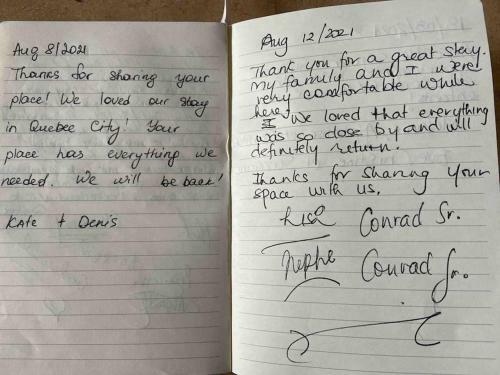 Aug 8/2021
Thanks for sharing your
place! We loved our stay
in Quebec City! Your
place has everything we
needed. We will be back!
Kate + Denis
Aug 12/2021
Thank you for a great stay.
My family and I were
very comfortable while
here. We loved that everything
was so close by and will
definitely return.
Thanks for sharing your
space with us.
Conrad Sr.
Conrad Jr.